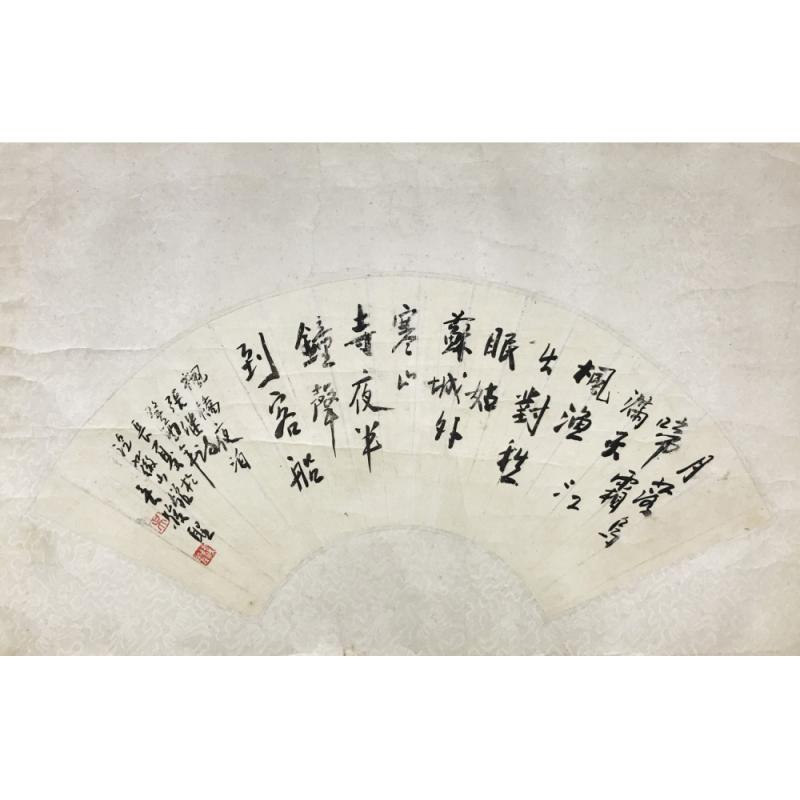 月落烏
啼霜
滿天江
楓漁
火對愁
眠姑
蘇城外
寒山
寺夜半
鐘聲
到客船
楓橋夜泊
張繼詩
癸酉夏